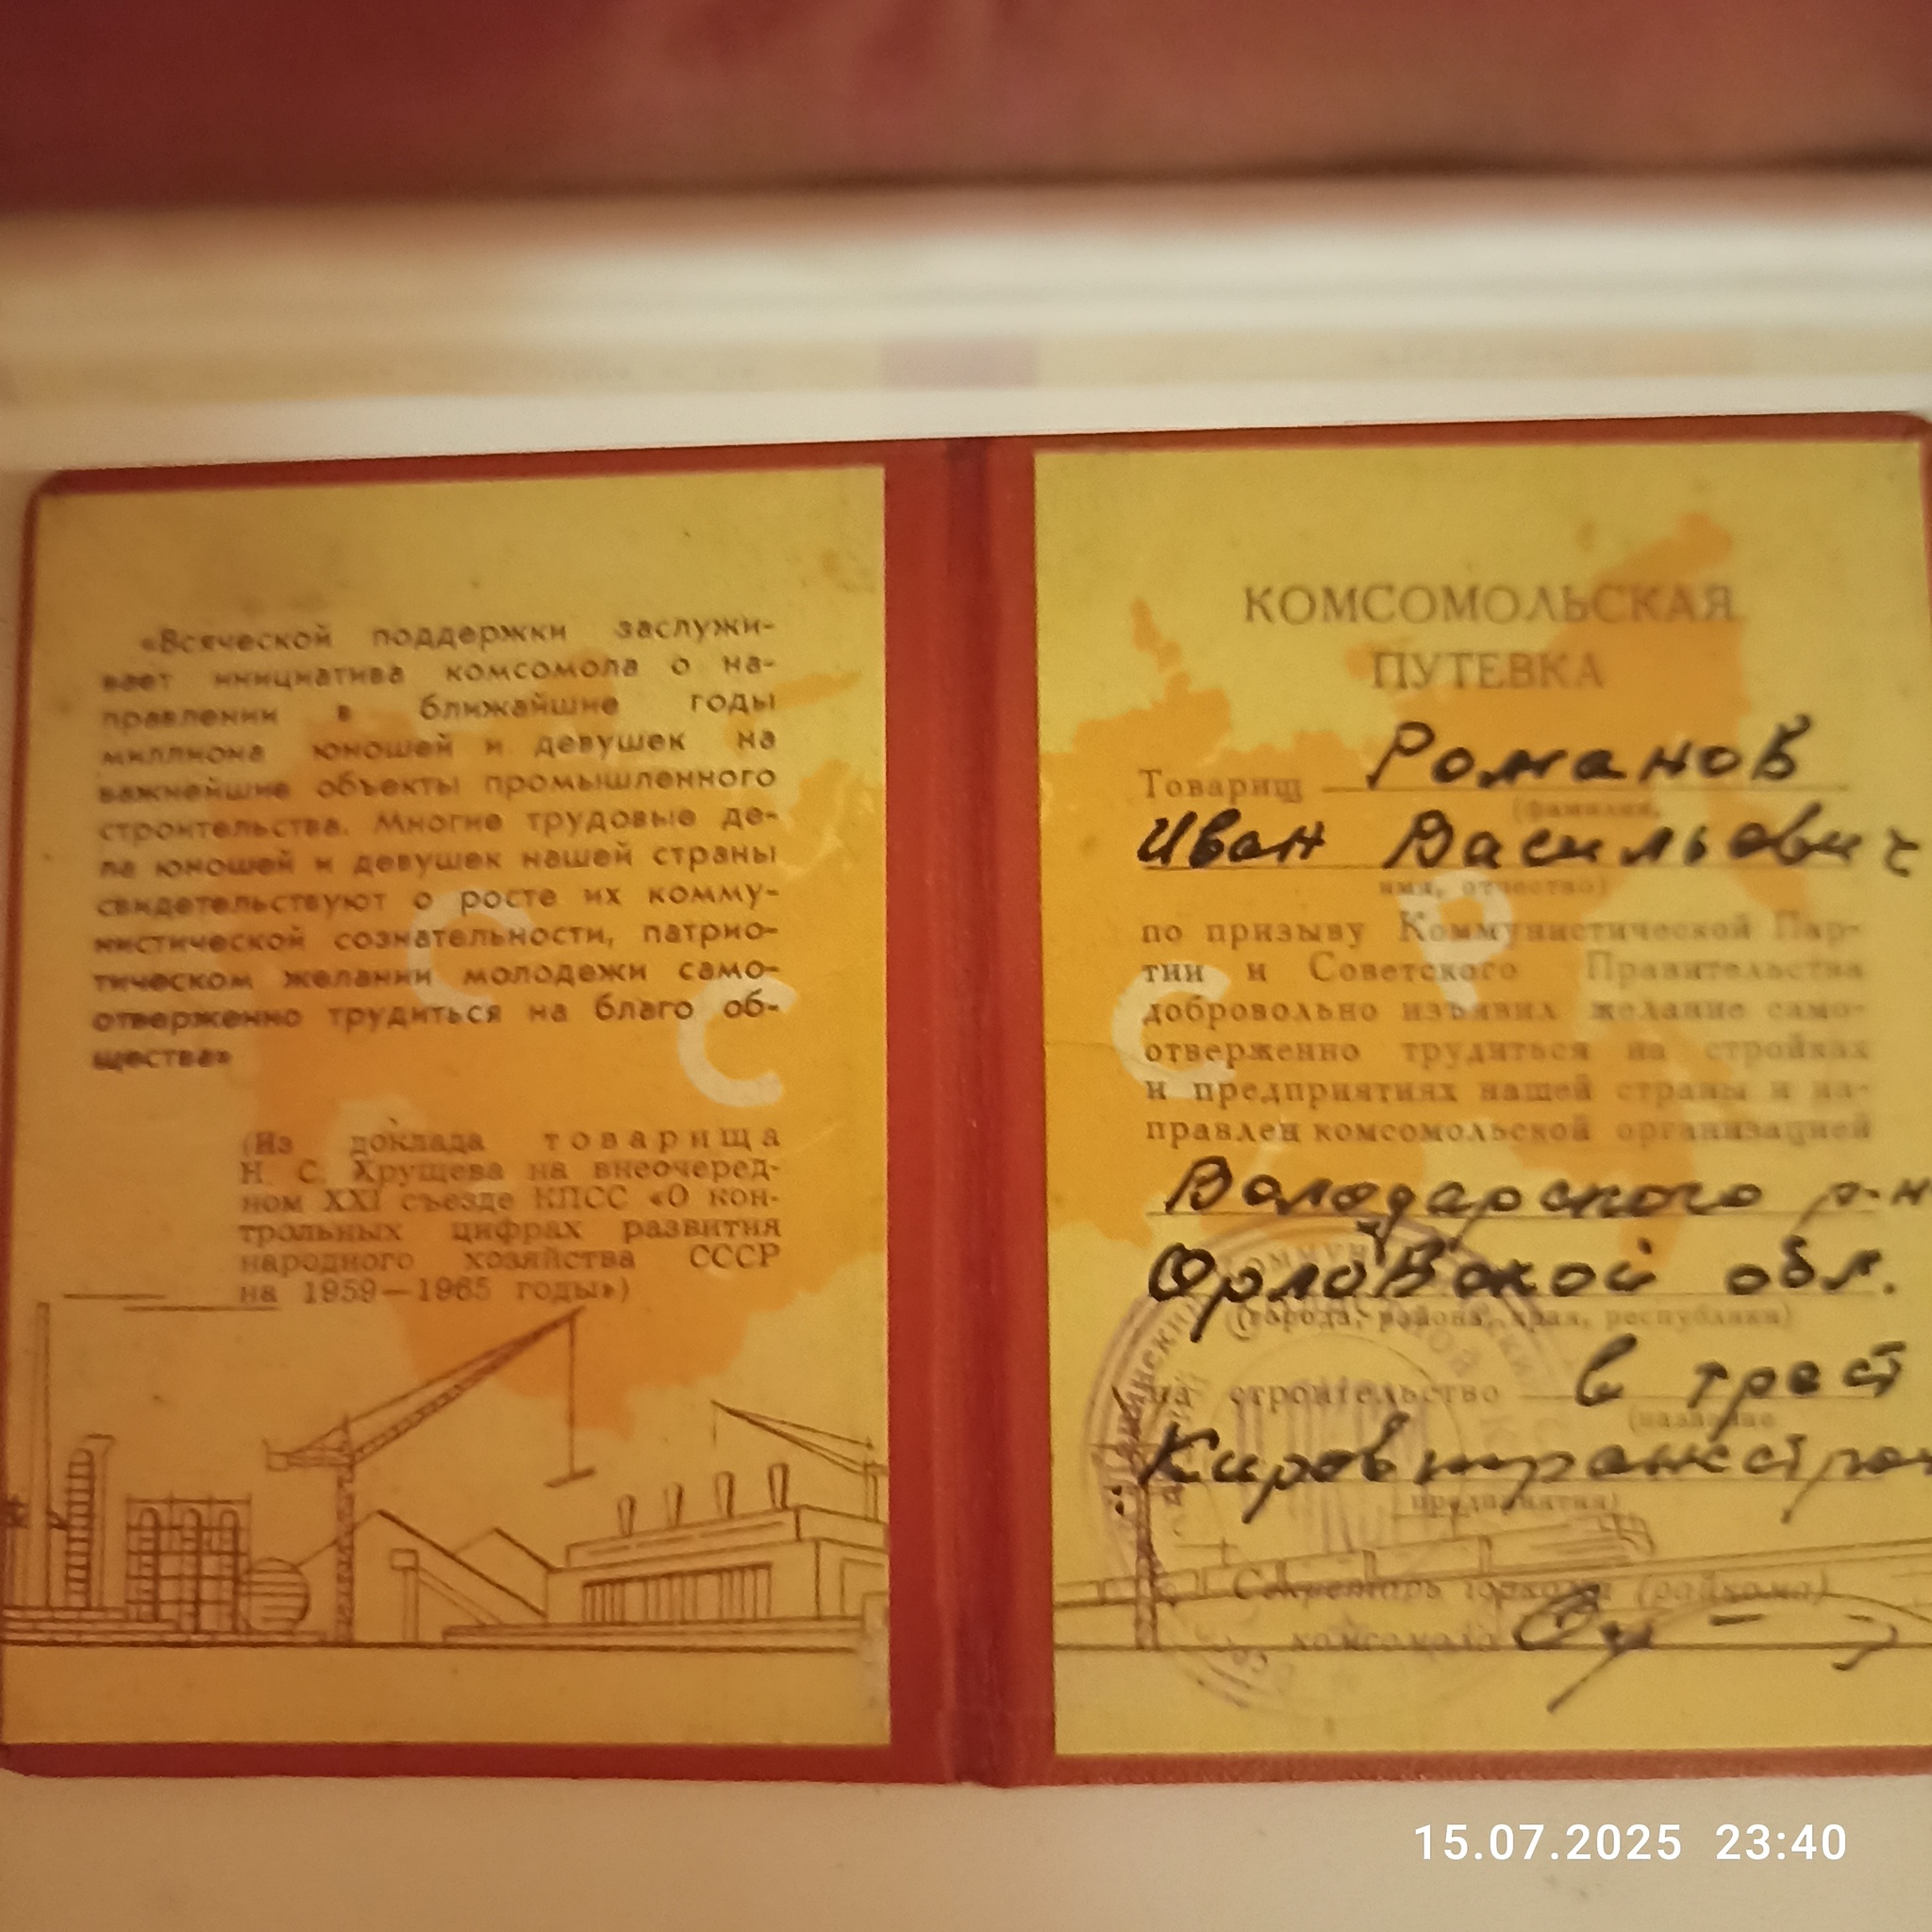 «Всяческой поддержки заслужи-
вает инициатива комсомола о на-
правлении в ближайшие годы
миллиона юношей и девушек на
важнейшие объекты промышленного
строительства. Многие трудовые де-
ла юношей и девушек нашей страны
свидетельствуют о росте их комму-
нистической сознательности, патрио-
тическом желании молодежи само-
отверженно трудиться на благо об-
щества»
(Из доклада товарища
Н. С. Хрущева на внеочеред-
ном XXI съезде КПСС «О кон-
трольных цифрах развития
народного хозяйства СССР
на 1959—1965 годы»)
С С
КОМСОМОЛЬСКАЯ
ПУТЕВКА
Товарищ Романов
(фамилия,
Иван Васильович
имя, отчество)
по призыву Коммунистической Пар-
тии и Советского Правительства
добровольно изъявил желание само-
отверженно трудиться на стройках
и предприятиях нашей страны и на-
правлен комсомольской организацией
Володарского р-н
Орловской обл.
(города, района, края, республики)
на строительство в трест
(название
Кировтрансстрой
предприятия)
Секретарь горкома (райкома)
комсомола
С Р
15.07.2025 23:40